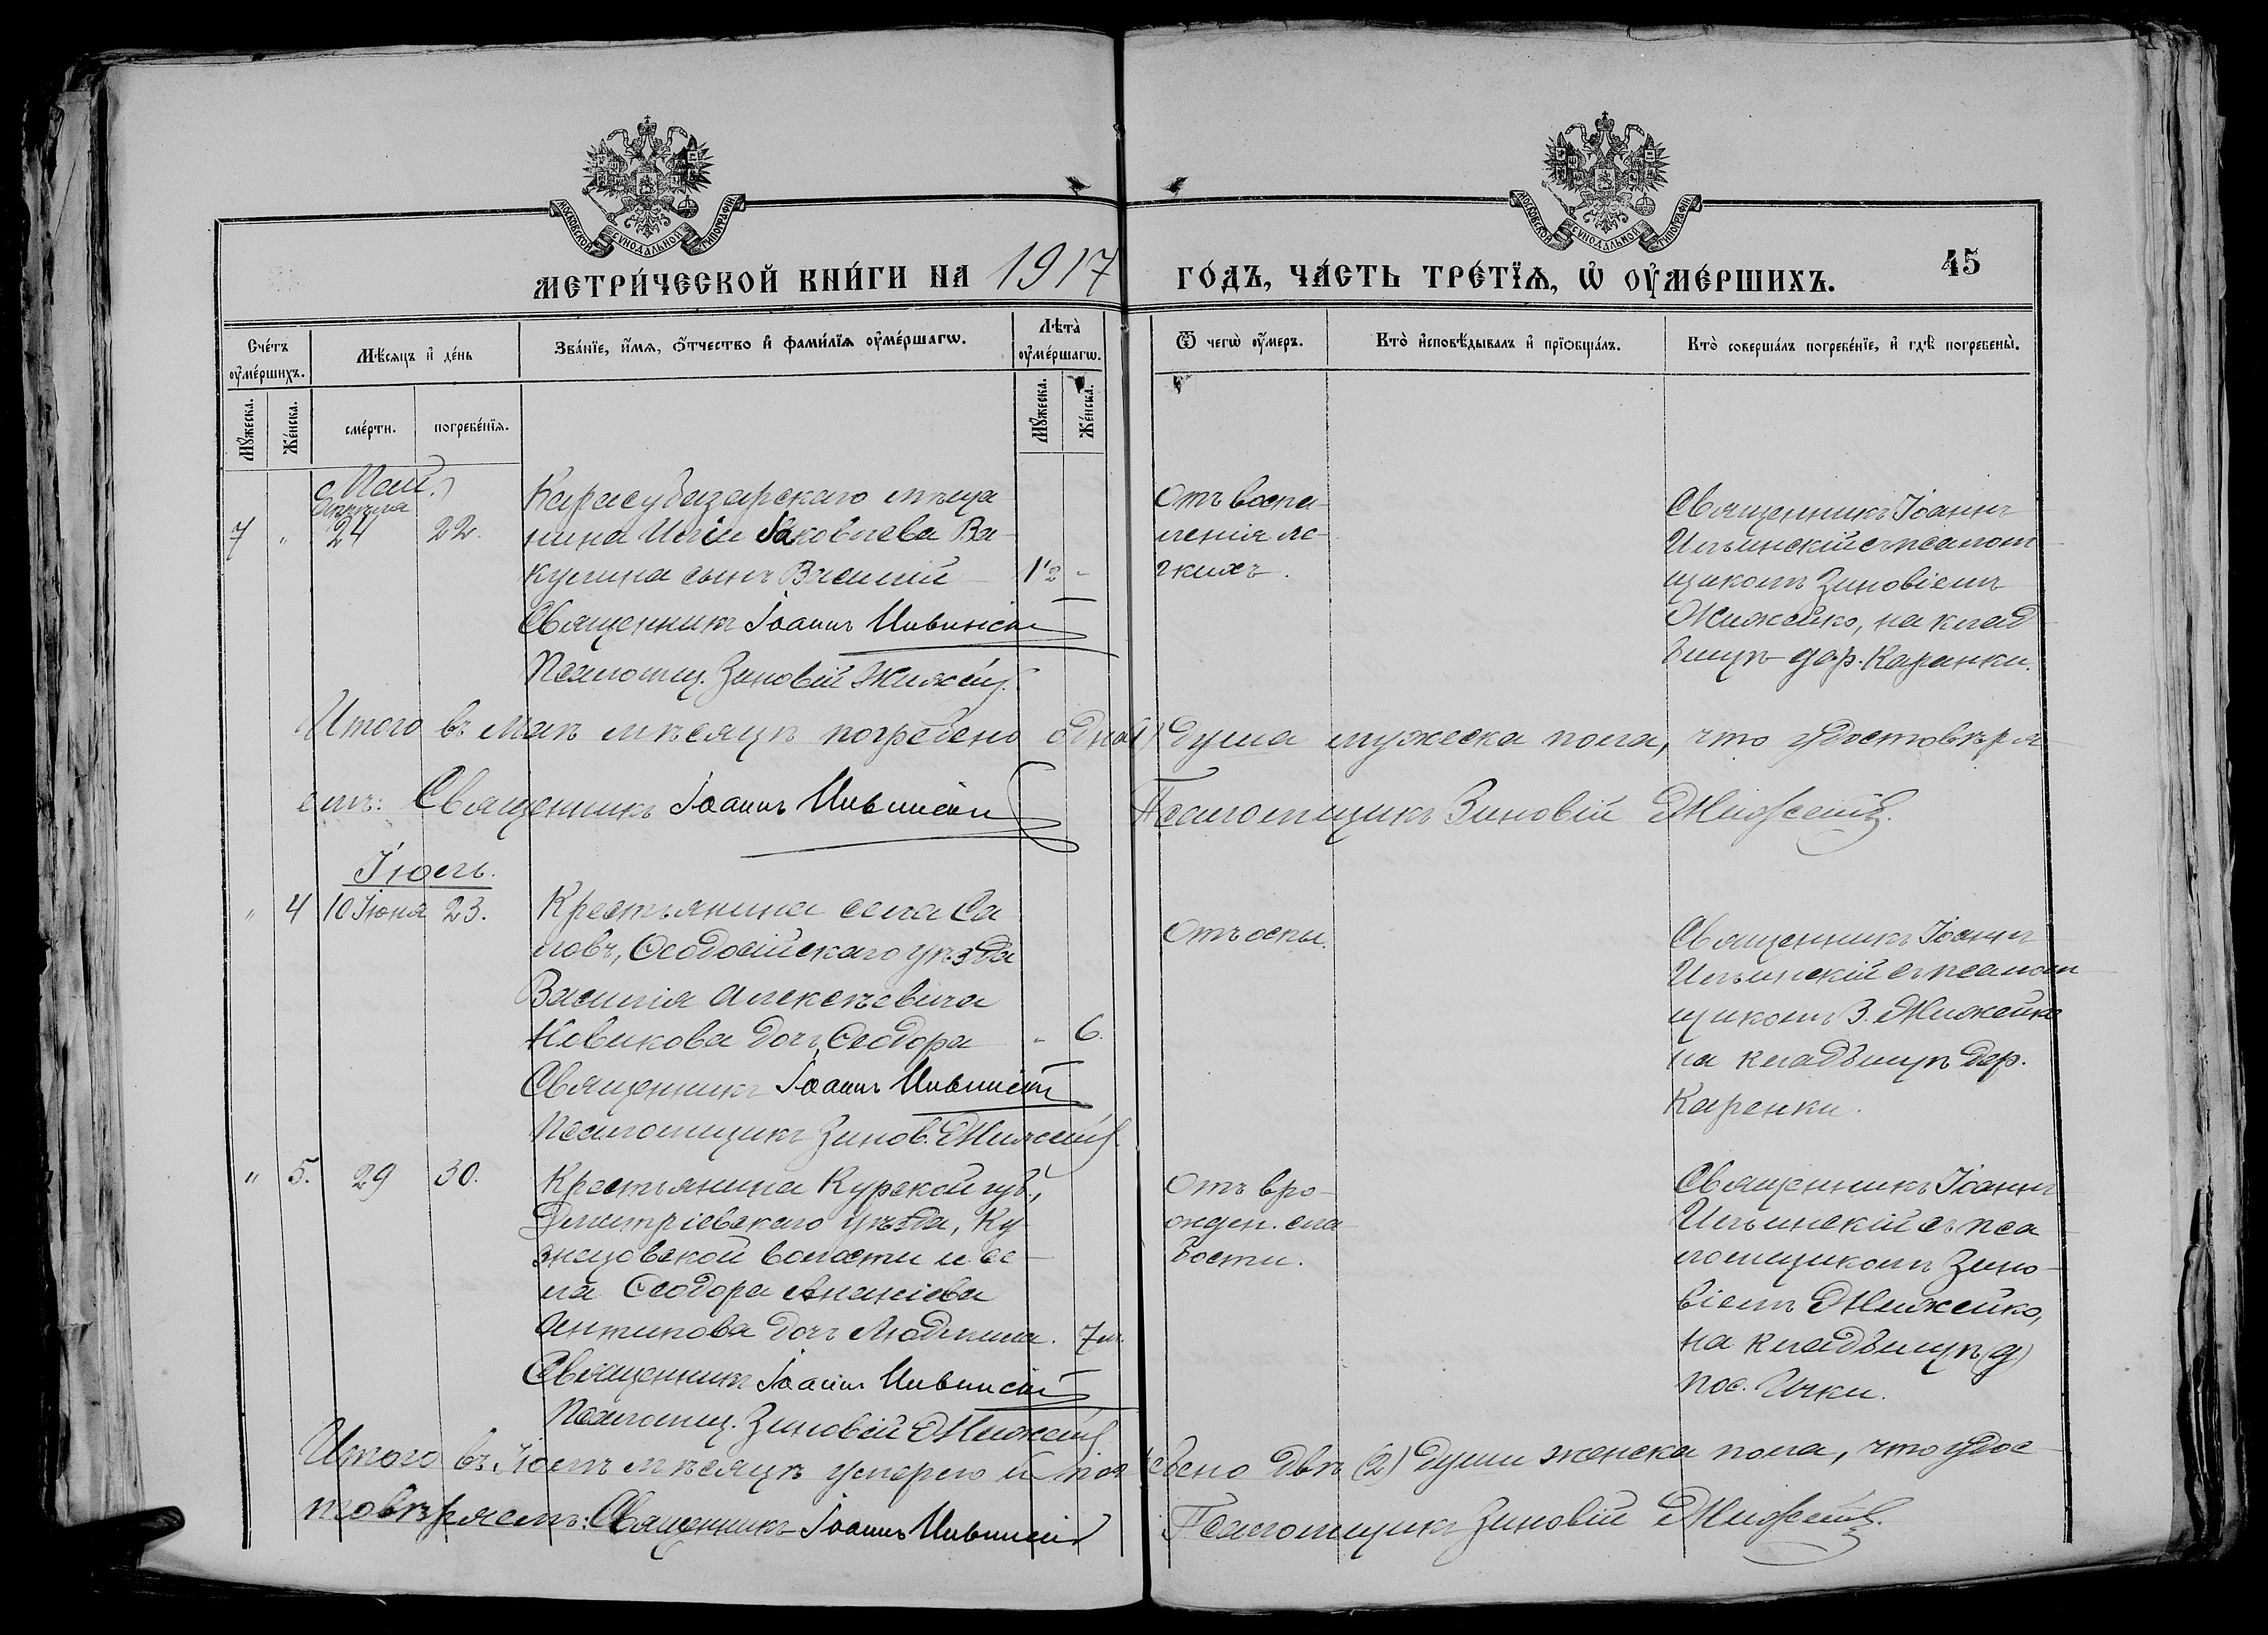 МОСКОВСКОЙ СѴНОДАЛЬНОЙ ТИПОГРАФІИ
МОСКОВСКОЙ СѴНОДАЛЬНОЙ ТИПОГРАФІИ
МЕТРИ́ЧЕСКОЙ КНИ́ГИ НА 1917 ГО́ДЪ, ЧА́СТЬ ТРЕ́ТЇѦ, Ѡ҆ ОУ҆МЕ́РШИХЪ.
45
Сче́тъ оу҆ме́ршихъ.
Мѣ́сяцъ и҆ де́нь
Зва́нїе, и҆́мѧ, ѻ҆́тчество и҆ фами́лїѧ оу҆ме́ршагѡ.
Лѣта̀ оу҆ме́ршагѡ.
Ѿ чегѡ̀ оу҆́меръ.
Кто̀ и҆сповѣ́дывалъ и҆ прїѡбща́лъ.
Кто̀ соверша́лъ погребе́нїе, и҆ гдѣ̀ погребены̀.
Мꙋ́жеска.
Же́нска.
сме́рти.
погребе́нїѧ.
Мꙋ́жеска.
Же́нска.
Май.
Апрѣля
7 " 24 22.
Карасубазарскаго мѣща-
нина Иліи Яковлева Ва-
кулина сынъ Василій 1½ -
Священникъ Іоаннъ Ильинскій
Псаломщ. Зиновій Жижейко
Отъ воспа-
ленія ле-
гкихъ.
Священникъ Іоаннъ
Ильинскій съ псалом-
щикомъ Зиновіемъ
Жижейко, на клад-
бищѣ дер. Каранки.
Итого въ Маѣ мѣсяцѣ погребено одна (1) душа мужеска пола, что удостовѣря-
етъ: Священникъ Іоаннъ Ильинскій
Псаломщикъ Зиновій Жижейко.
Іюль.
" 4 10 Іюня 23.
Крестьянина села Са
ловъ, Ѳеодосійскаго уѣзда
Василія Алексѣевича
Новикова дочь Ѳеодора " 6.
Священникъ Іоаннъ Ильинскій
Псаломщикъ Зинов. Жижейко
Отъ оспы.
Священникъ Іоаннъ
Ильинскій съ псалом-
щикомъ З. Жижейко
на кладбищѣ дер.
Каренки.
" 5. 29 30.
Крестьянина Курской губ.,
Дмитріевскаго уѣзда, Ку-
знецовской волости и се-
ла Ѳеодора Ананіева
Антипова дочь Людмила. 7 м.
Священникъ Іоаннъ Ильинскій
Псаломщ. Зиновій Жижейко
Отъ вро-
жден. сла-
бости.
Священникъ Іоаннъ
Ильинскій съ пса-
ломщикомъ Зино-
віемъ Жижейко,
на кладбищѣ (д)
пос. Ички.
Итого въ Іюлѣ мѣсяцѣ умерло и погребено двѣ (2) души женска пола, что удос-
товѣряетъ: Священникъ Іоаннъ Ильинскій
Псаломщикъ Зиновій Жижейко.